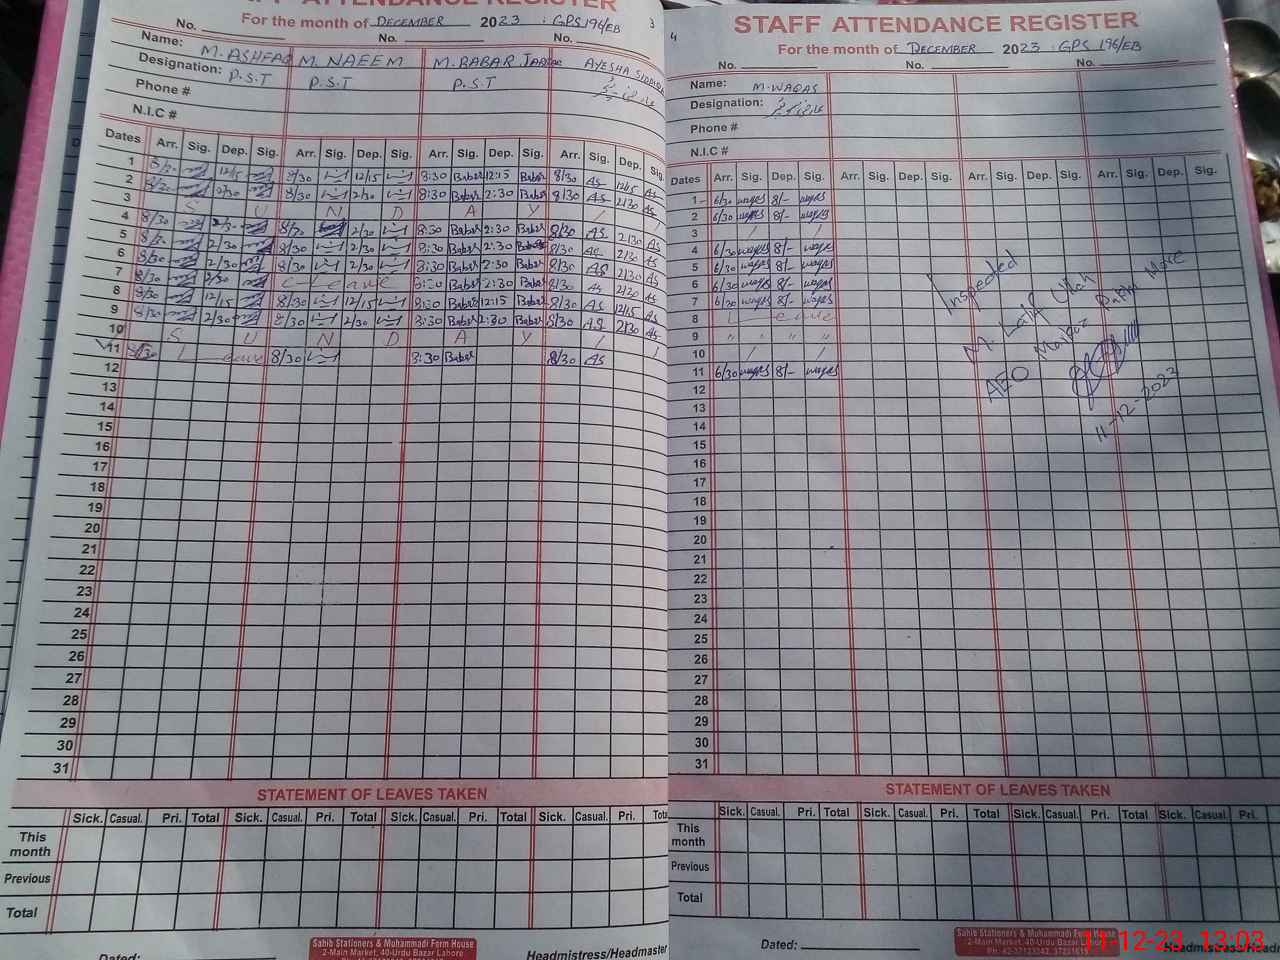 STAFF ATTENDANCE REGISTER
For the month of DECEMBER 2023 : GPS 196/EB 3
No. No. No.
Name: M. ASHFAQ M. NAEEM M. BABAR AYESHA
Designation: P.S.T P.S.T P.S.T
Phone #
N.I.C #
Dates Arr. Sig. Dep. Sig. Arr. Sig. Dep. Sig. Arr. Sig. Dep. Sig. Arr. Sig. Dep. Sig.
1 8/30 12/15 8/30 12/15 8:30 Babar 12:15 Babar 8/30 AS 12/15 AS
2 8/30 2/30 8/30 2/30 8:30 Babar 2:30 Babar 8/30 AS 2/30 AS
3 S U N D A Y
4 8/30 2/30 8/30 2/30 8:30 Babar 2:30 Babar 8/30 AS 2/30 AS
5 8/30 2/30 8/30 2/30 8:30 Babar 2:30 Babar 8/30 AS 2/30 AS
6 8/30 2/30 8/30 2/30 8:30 Babar 2:30 Babar 8/30 AS 2/30 AS
7 8/30 2/30 Leave 8:30 Babar 2:30 Babar 8/30 AS 2/30 AS
8 8/30 12/15 8/30 12/15 8:30 Babar 12:15 Babar 8/30 AS 12/15 AS
9 8/30 2/30 8/30 2/30 8:30 Babar 2:30 Babar 8/30 AS 2/30 AS
10 S U N D A Y
11 8/30 Leave 8/30 8:30 Babar 8/30 AS
12
13
14
15
16
17
18
19
20
21
22
23
24
25
26
27
28
29
30
31
STATEMENT OF LEAVES TAKEN
Sick. Casual. Pri. Total Sick. Casual. Pri. Total Sick. Casual. Pri. Total Sick. Casual. Pri. Total
This month
Previous
Total
Sahib Stationers & Muhammadi Form House
2-Main Market, 40-Urdu Bazar Lahore
Headmistress/Headmaster
4
STAFF ATTENDANCE REGISTER
For the month of DECEMBER 2023 : GPS 196/EB
No. No. No.
Name: M. WAQAS
Designation:
Phone #
N.I.C #
Dates Arr. Sig. Dep. Sig. Arr. Sig. Dep. Sig. Arr. Sig. Dep. Sig. Arr. Sig. Dep. Sig.
1 6/30 waqas 8/- waqas
2 6/30 waqas 8/- waqas
3
4 6/30 waqas 8/- waqas
5 6/30 waqas 8/- waqas
6 6/30 waqas 8/- waqas
7 6/30 waqas 8/- waqas
8 Leave
9 " " " "
10
11 6/30 waqas 8/- waqas
12
13
14
15
16
17
18
19
20
21
22
23
24
25
26
27
28
29
30
31
Inspected
M. Latif Ullah
AEO Markaz Pakhi More
11-12-2023
STATEMENT OF LEAVES TAKEN
Sick. Casual. Pri. Total Sick. Casual. Pri. Total Sick. Casual. Pri. Total Sick. Casual. Pri.
This month
Previous
Total
Dated:
Sahib Stationers & Muhammadi Form House
2-Main Market, 40-Urdu Bazar Lahore
Headmistress/Head
11-12-23 13:03